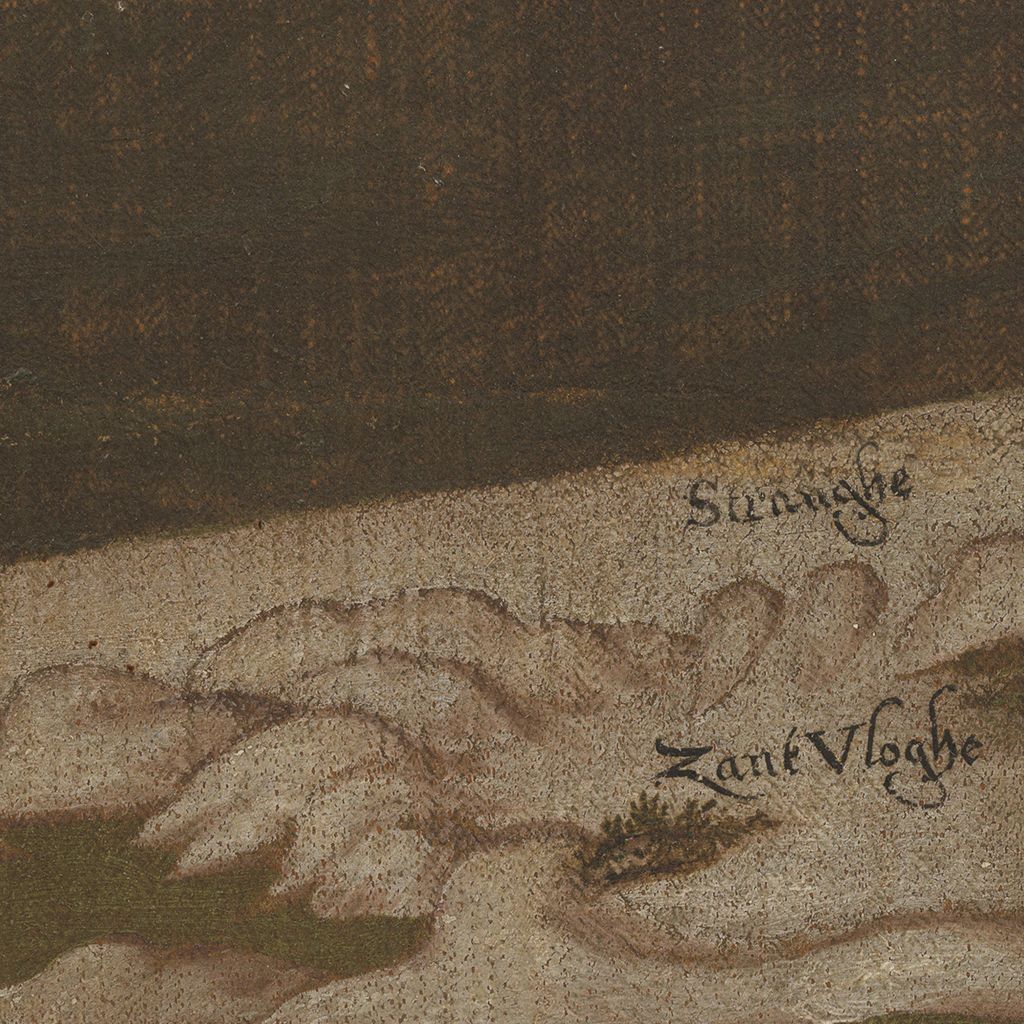 Stranghe
Zant Vloghe